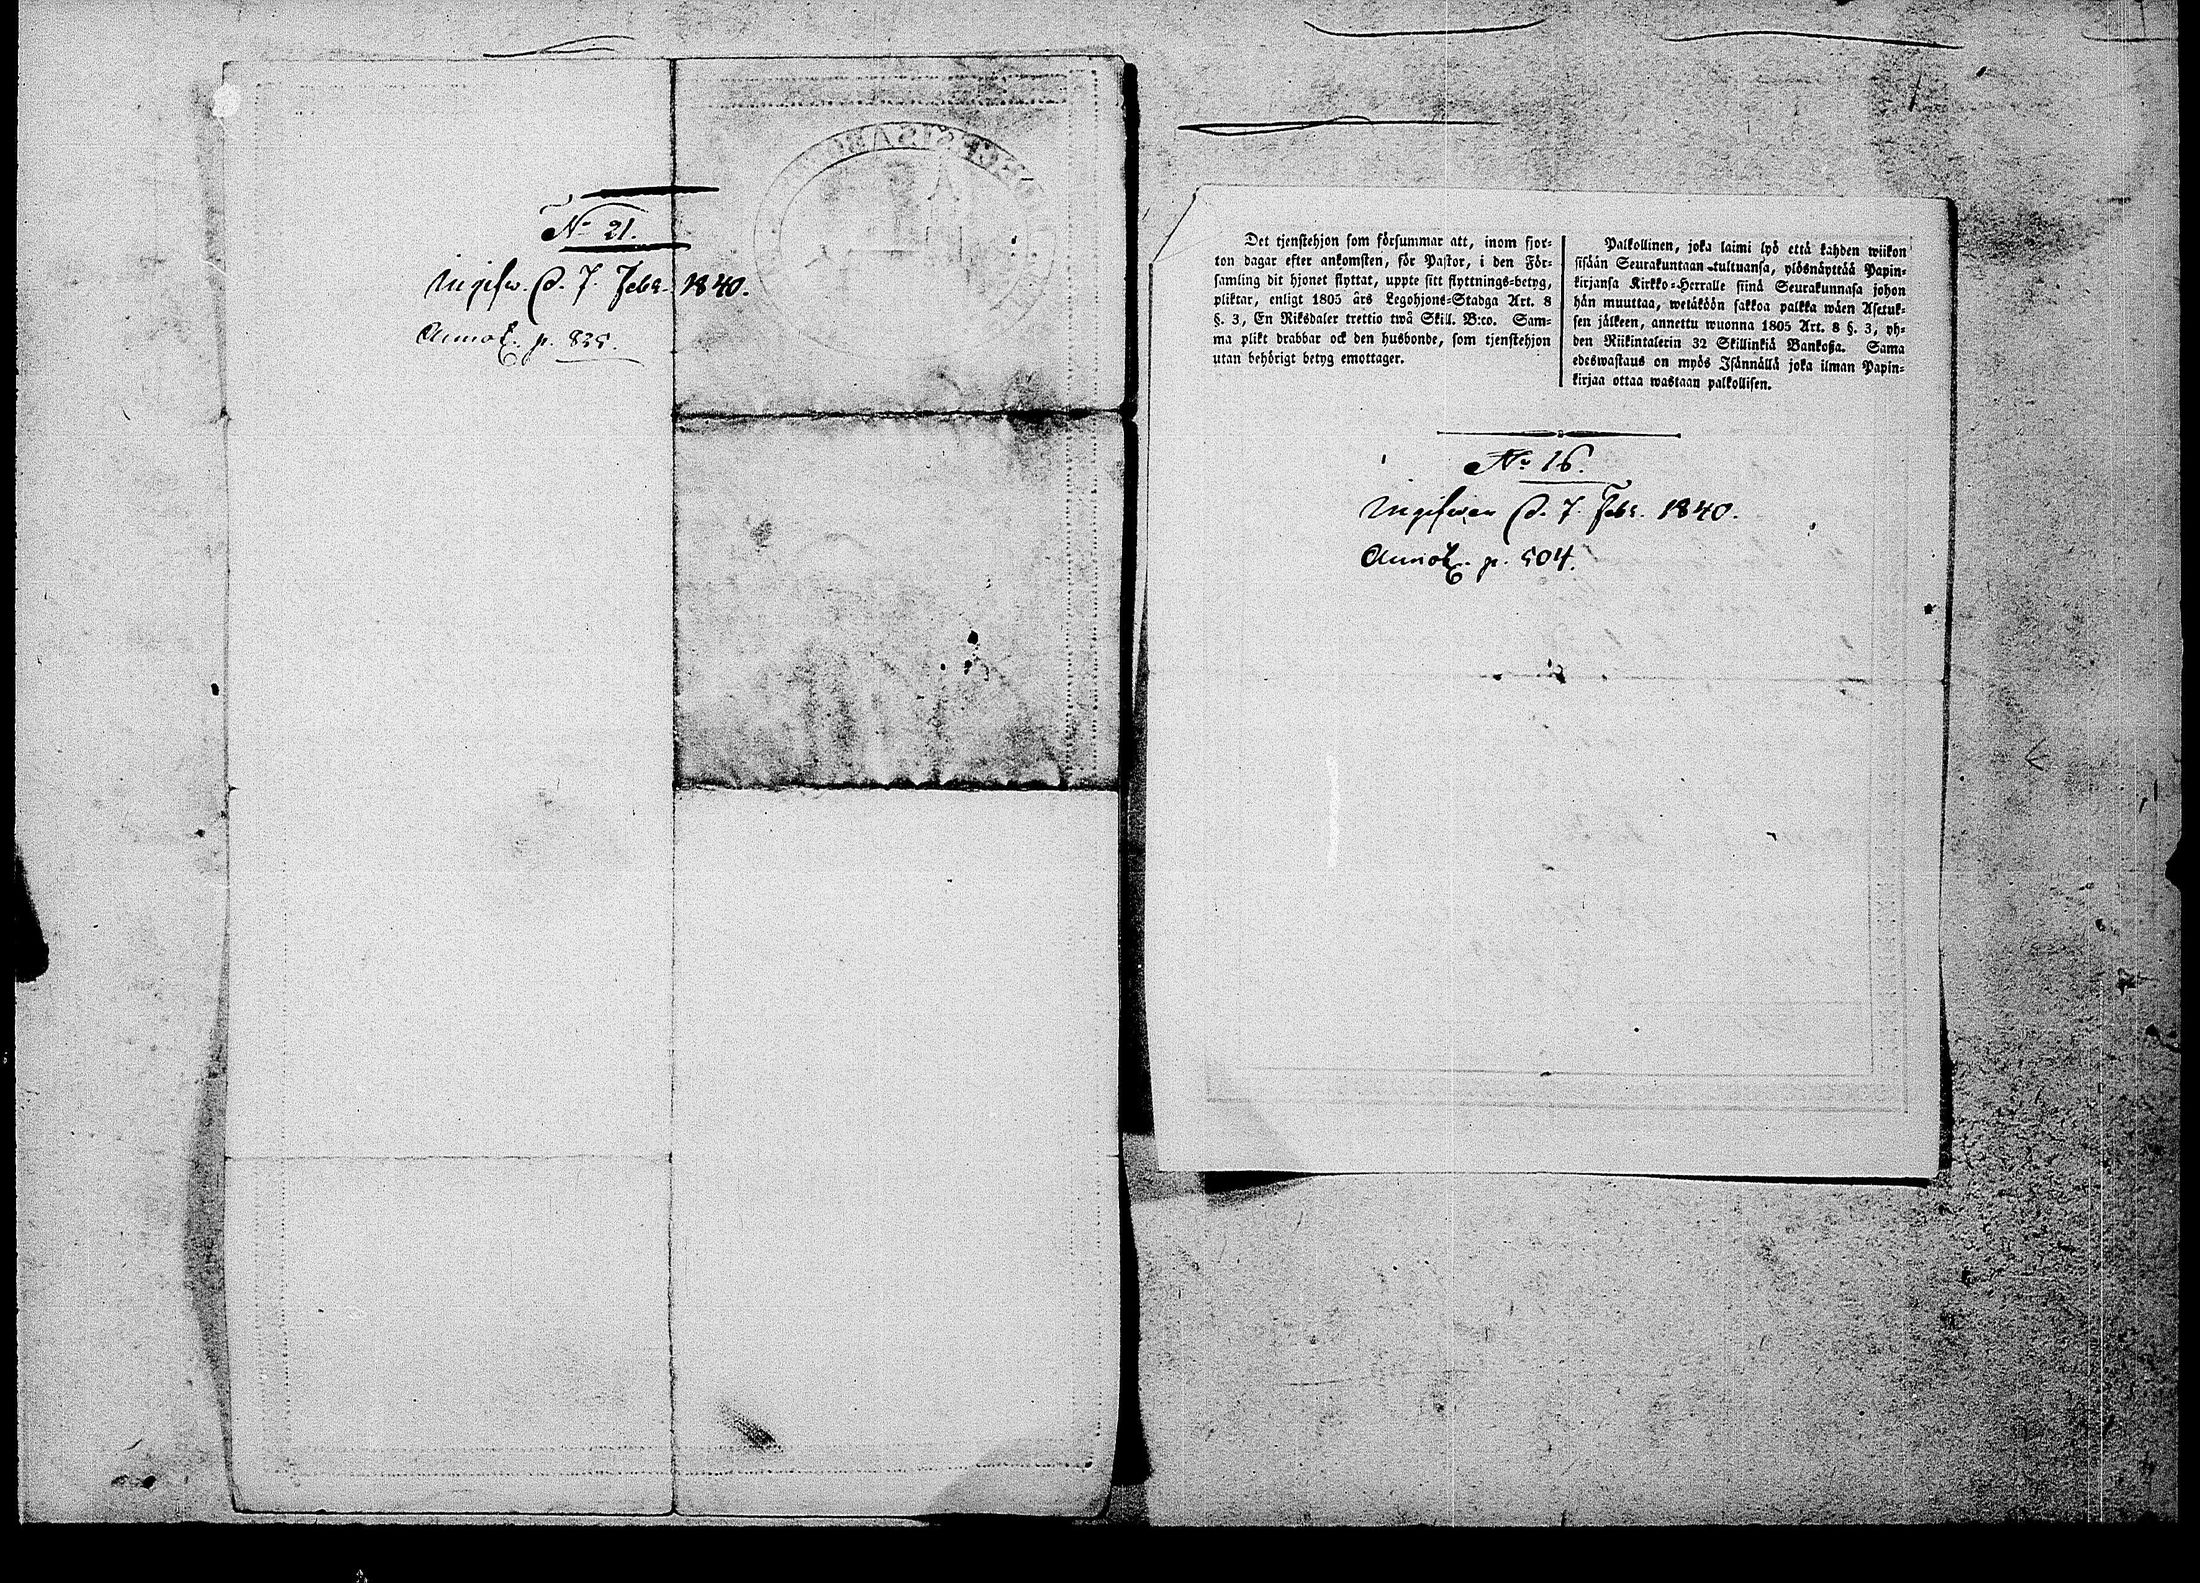 No 21.
Ingifw. d. 7. Febr. 1840.
Annot. p. 835.
Det tjenstehjon som försummar att, inom fjor-
ton dagar efter ankomsten, för Pastor, i den För-
samling dit hjonet flyttat, uppte sitt flyttnings-betyg,
pliktar, enligt 1805 års Legohjons-Stadga Art. 8
§. 3, En Riksdaler trettio twå Skill. B:co. Sam-
ma plikt drabbar ock den husbonde, som tjenstehjon
utan behörigt betyg emottager.
Palkollinen, joka laimi lyö että kahden wiikon
sisään Seurakuntaan tultuansa, ylösnäyttää Papin-
kirjansa Kirkko-Herralle siinä Seurakunnasa johon
hän muuttaa, wetäköön sakkoa palkka wäen Asetuk-
sen jälkeen, annettu wuonna 1805 Art. 8 §. 3, yh-
den Riikintalerin 32 Skillinkiä Bankoßa. Sama
edeswastaus on myös Isännällä joka ilman Papin-
kirjaa ottaa wastaan palkollisen.
No 16.
Ingifwen d. 7. Febr. 1840.
Annot. p. 504.